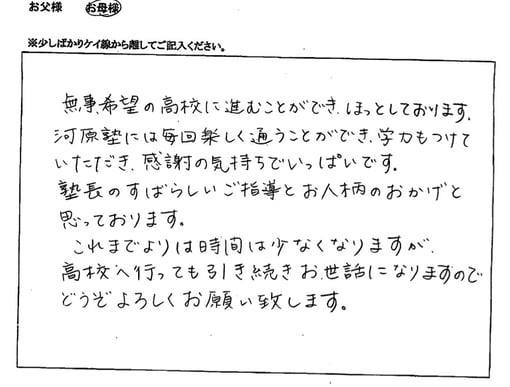 お父様 お母様
※少しばかりケイ線から離してご記入ください。
無事、希望の高校に進むことができ、ほっとしております。
河原塾には毎回楽しく通うことができ、学力もつけて
いただき、感謝の気持ちでいっぱいです。
塾長のすばらしいご指導とお人柄のおかげと
思っております。
これまでよりは時間は少なくなりますが、
高校へ行っても引き続きお世話になりますので
どうぞよろしくお願い致します。